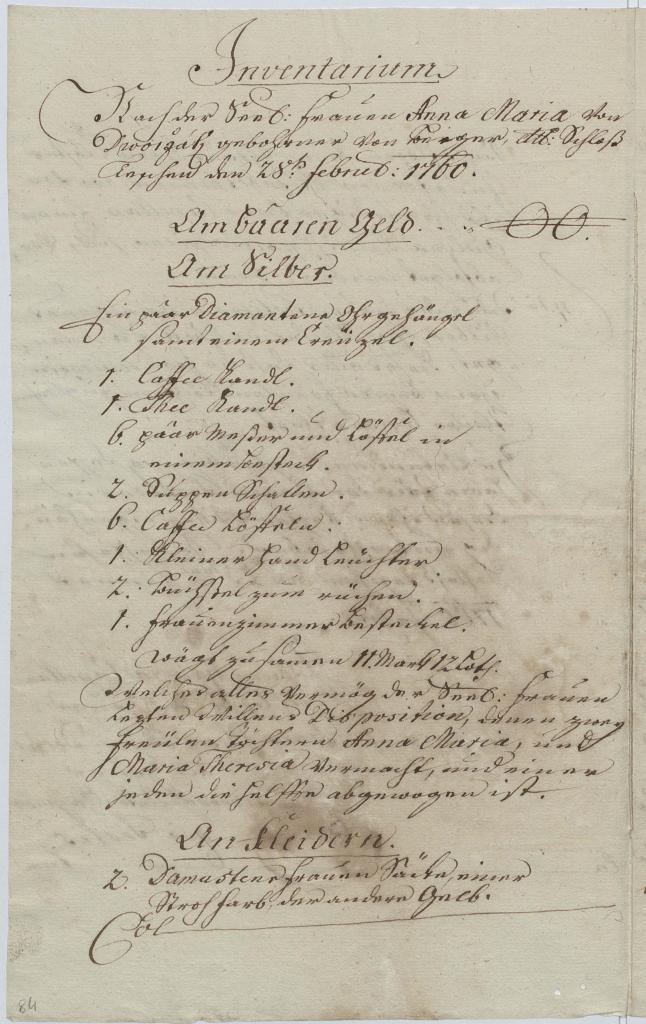 Inventarium
Nach der Seel: Frauen Anna Maria von
gebohrner von Berger, Schloß
Teschen den 28t: Febru: 1760.
Am baaren Geld. . . 00.
Am Silber.
Ein paar Diamantene Ohrgehängel
samt einem Creützel.
1. Caffee Kandl.
1. Thee Kandl.
6. paar Messer und Löffel in
einem besteck.
2. Suppen Schallen.
6. Caffee Löffeln.
1. Kleiner Hand Leüchter
2. Büchsel zum rüchen.
1. Frauenzimmer besteckel.
wägt zusamen 11 Mark 12 Loth.
Welches alles Vermög der Seel: Frauen
Lezten Willens Disposition, denen zwey
Freülen Töchtern Anna Maria, und
Maria Theresia Vermacht, und einer
jeden die helffte abgewogen ist.
An Kleidern.
2. Damastene Frauen Säcke, einer
Strohfarb, der andere Gelb.
84